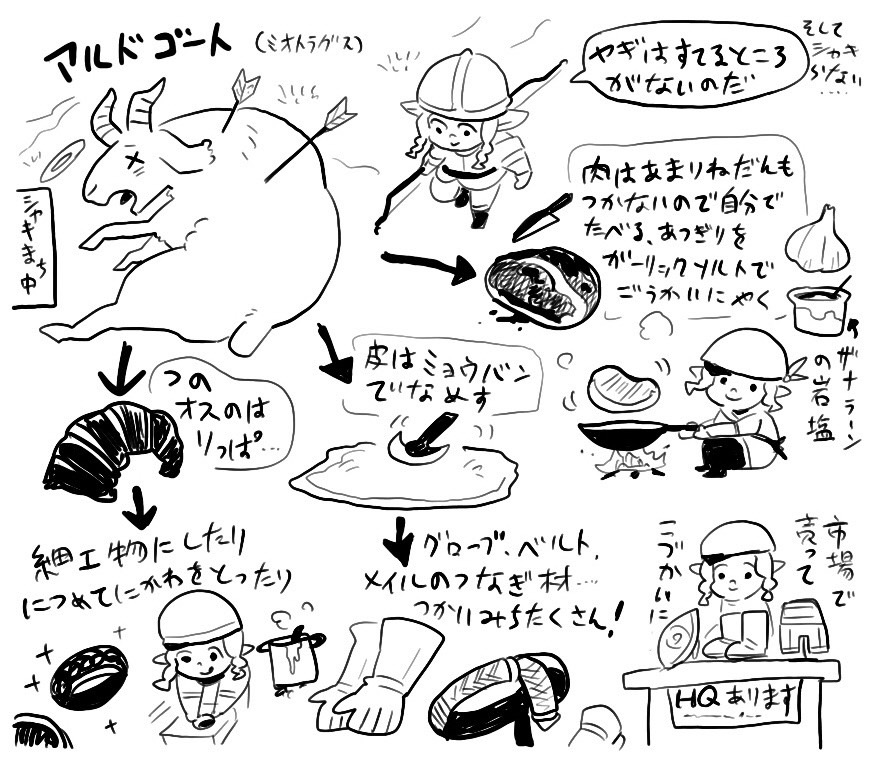 アルドゴート
(ミオトラグス)
やぎはすてるところ
がないのだ
そして
シャキ
らない
……
シャキまち中
肉はあまりねだんも
つかないので自分で
たべる、あつぎりを
ガーリックソルトで
ごうかいにやく
ザナラーン
の岩塩
つの
オスのは
りっぱ…
皮はミョウバン
でなめす
細工物にしたり
につめてにかわをとったり
グローブ、ベルト、
メイルのつなぎ材…
つかいみちたくさん!
市場で
売って
こづかいに
HQあります